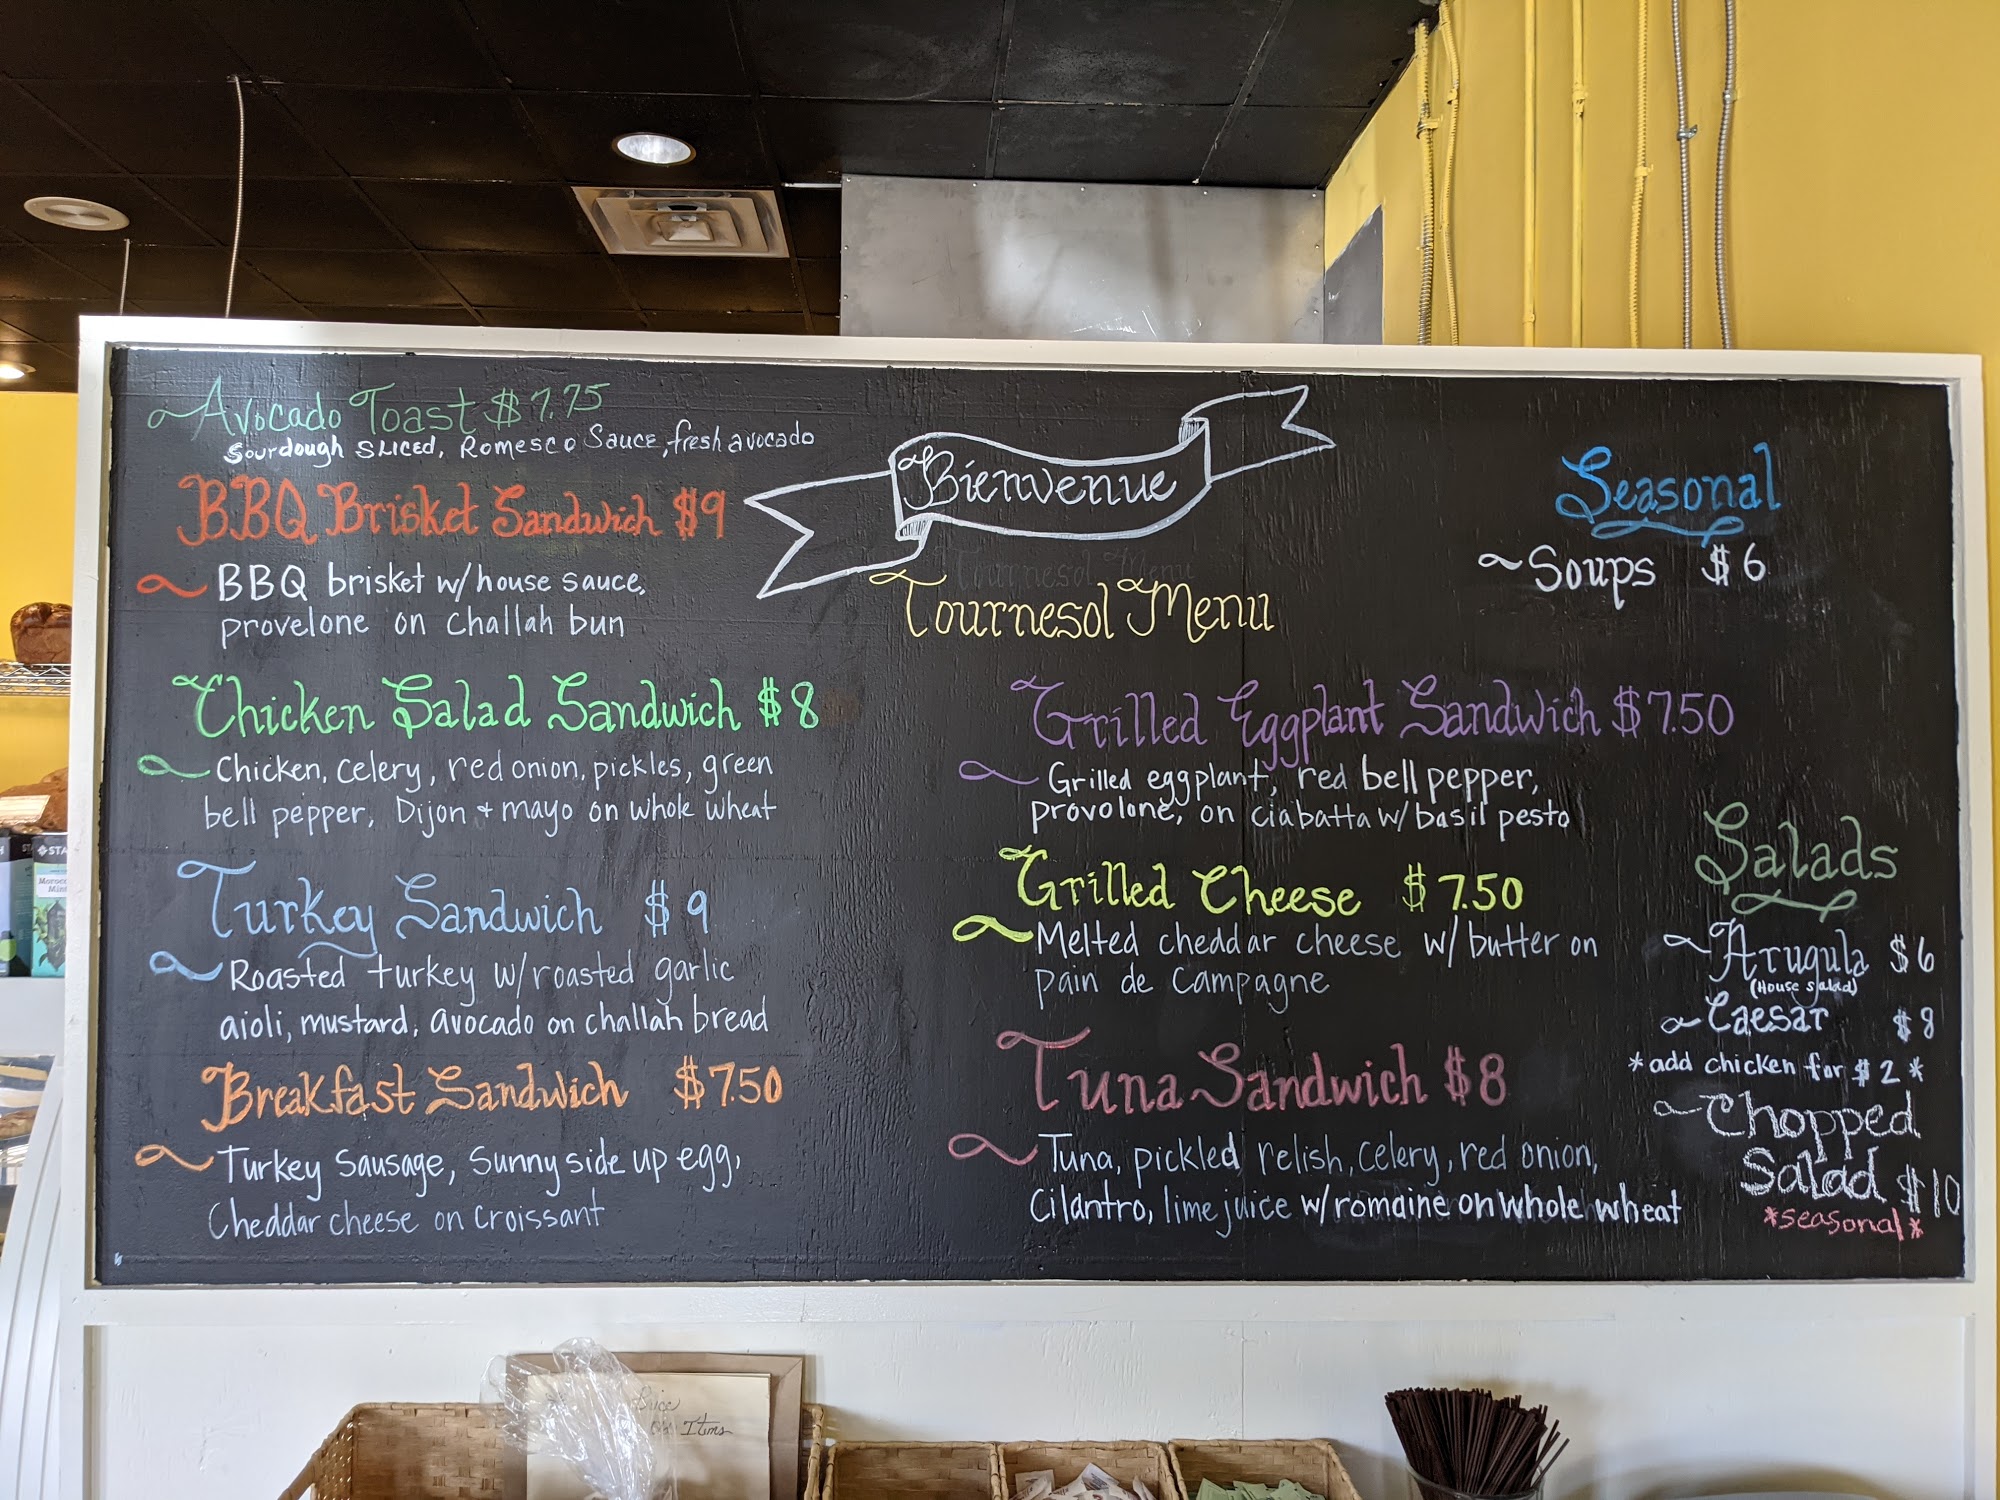 Avocado Toast $7.75
Sourdough Sliced, Romesco Sauce, fresh avocado
BBQ Brisket Sandwich $9
BBQ brisket w/house sauce,
provelone on challah bun
Chicken Salad Sandwich $8
Chicken, celery, red onion, pickles, green
bell pepper, Dijon + mayo on whole wheat
Turkey Sandwich $9
Roasted turkey w/roasted garlic
aioli, mustard, avocado on challah bread
Breakfast Sandwich $7.50
Turkey Sausage, Sunny side up egg,
Cheddar cheese on croissant
Bienvenue
Tournesol Menu
Tournesol Menu
Grilled Eggplant Sandwich $7.50
Grilled eggplant, red bell pepper,
provolone, on ciabatta w/basil pesto
Grilled Cheese $7.50
Melted cheddar cheese w/butter on
pain de Campagne
Tuna Sandwich $8
Tuna, pickled relish, celery, red onion,
Cilantro, lime juice w/romaine on whole wheat
Seasonal
Soups $6
Salads
Arugula $6
(House salad)
Caesar $8
*add chicken for $2*
Chopped
Salad $10
*seasonal*
Items